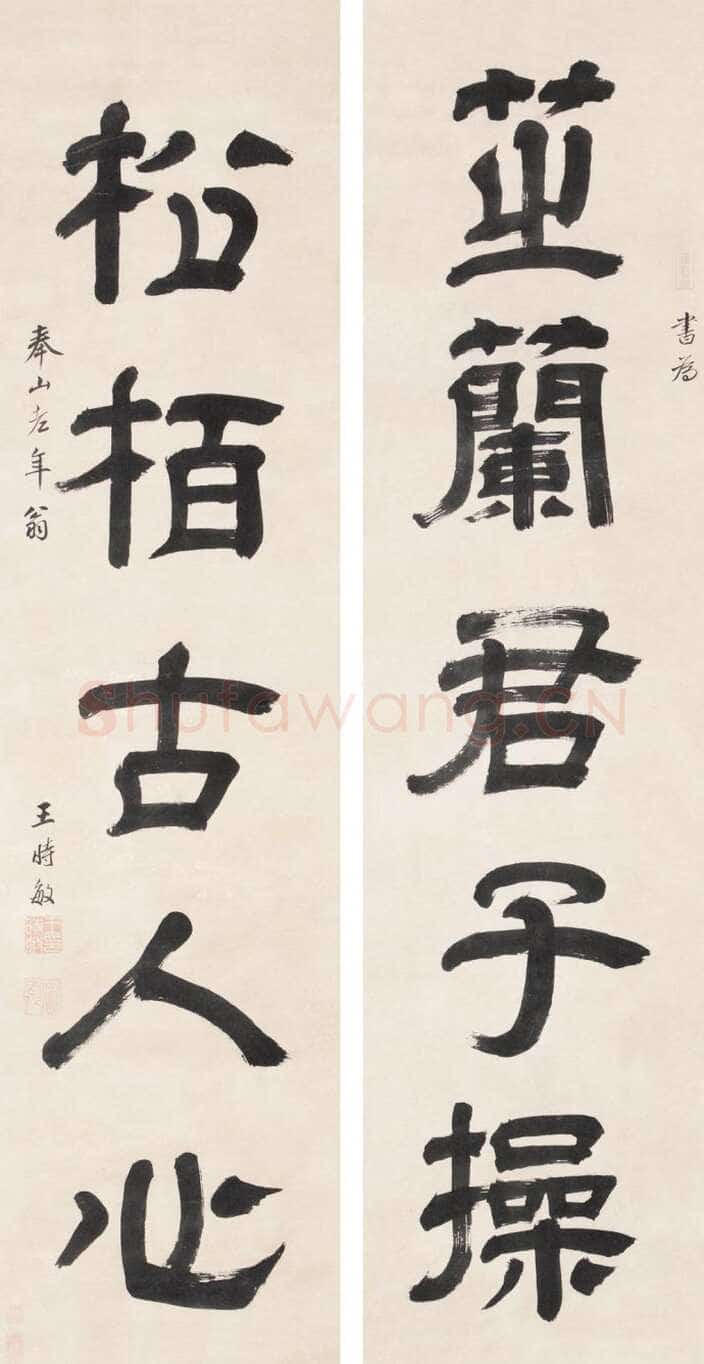 書為
芷蘭君子操
松栢古人心
奉山老年翁
王時敏
shufawang.CN